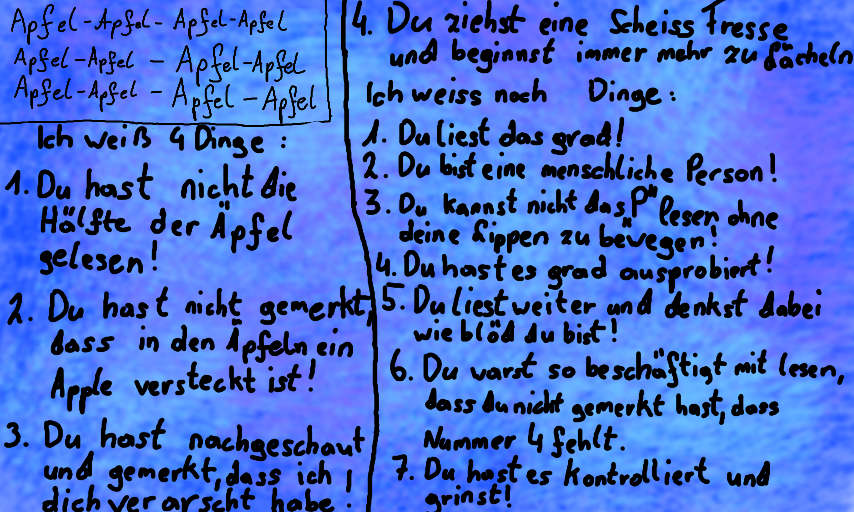 Apfel-Apfel- Apfel-Apfel
Apfel-Apfel - Apfel-Apfel
Apfel-Apfel - Apfel-Apfel
Ich weiß 4 Dinge :
1. Du hast nicht die
Hälfte der Äpfel
gelesen!
2. Du hast nicht gemerkt,
dass in den Äpfeln ein
Apple versteckt ist!
3. Du hast nachgeschaut
und gemerkt, dass ich
dich verarscht habe!
4. Du ziehst eine Scheiss Fresse
und beginnst immer mehr zu lächeln
Ich weiss noch Dinge :
1. Du liest das grad!
2. Du bist eine menschliche Person!
3. Du kannst nicht das "P" lesen ohne
deine Lippen zu bewegen!
4. Du hast es grad ausprobiert!
5. Du liest weiter und denkst dabei
wie blöd du bist!
6. Du warst so beschäftigt mit lesen,
dass du nicht gemerkt hast, dass
Nummer 4 fehlt.
7. Du hast es kontrolliert und
grinst!